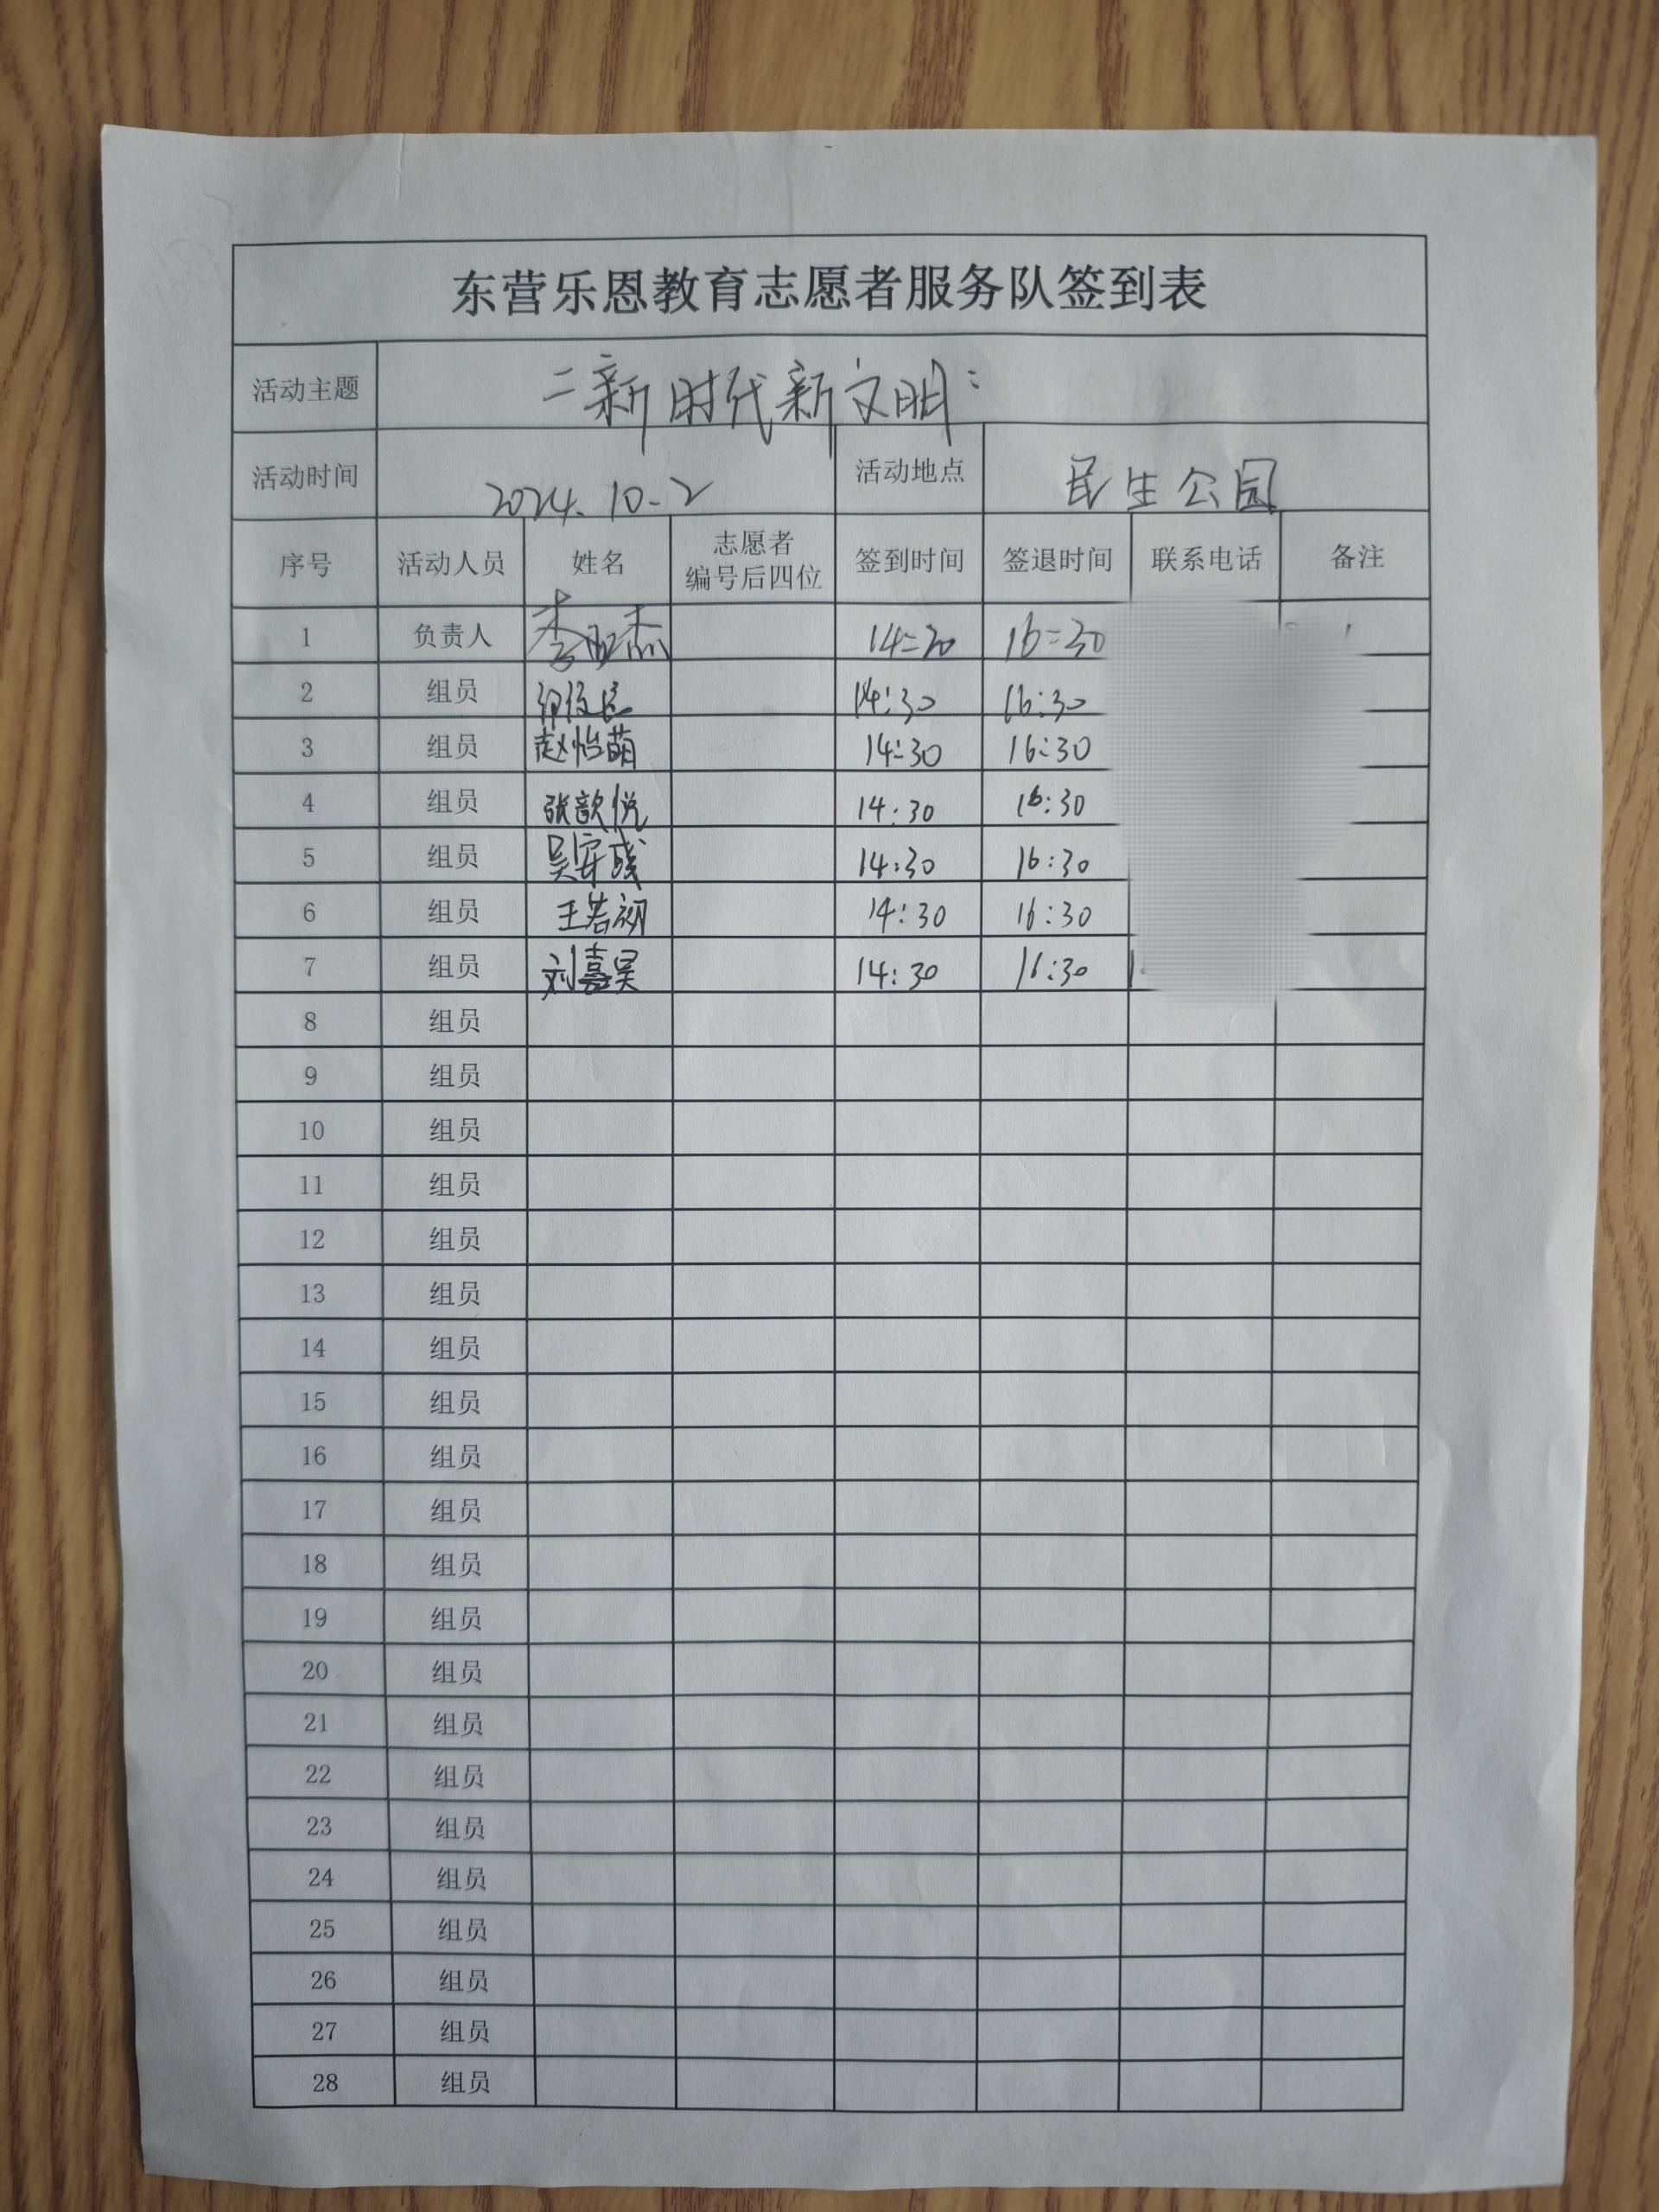 东营乐恩教育志愿者服务队签到表
活动主题 二新时代新文明:
活动时间 2024.10-2 活动地点 民生公园
序号 活动人员 姓名 志愿者编号后四位 签到时间 签退时间 联系电话 备注
1 负责人 14=30 16=30
2 组员 14:30 16:30
3 组员 赵怡萌 14:30 16:30
4 组员 张歆悦 14:30 16:30
5 组员 14:30 16:30
6 组员 王若初 14:30 16:30
7 组员 刘嘉昊 14:30 16:30
8 组员
9 组员
10 组员
11 组员
12 组员
13 组员
14 组员
15 组员
16 组员
17 组员
18 组员
19 组员
20 组员
21 组员
22 组员
23 组员
24 组员
25 组员
26 组员
27 组员
28 组员